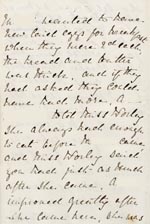 In wanted to have
new laid eggs for breakfast
when they were 3d each,
the bread and butter
was thick, and if they
had asked they could
have had more, A
told Miss Horley
She always had enough
to eat before the came,
and Miss Horley said
you had just as much
after she came. A
improved greatly after
she came here, She was